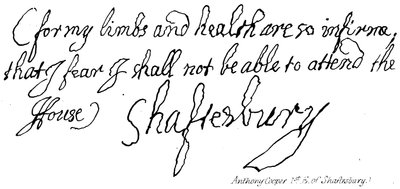 (for my limbs and health are so infirme,
that I fear I shall not be able to attend the
House)
Shaftesbury
Anthony Cooper 1st E. of Shaftesbury.